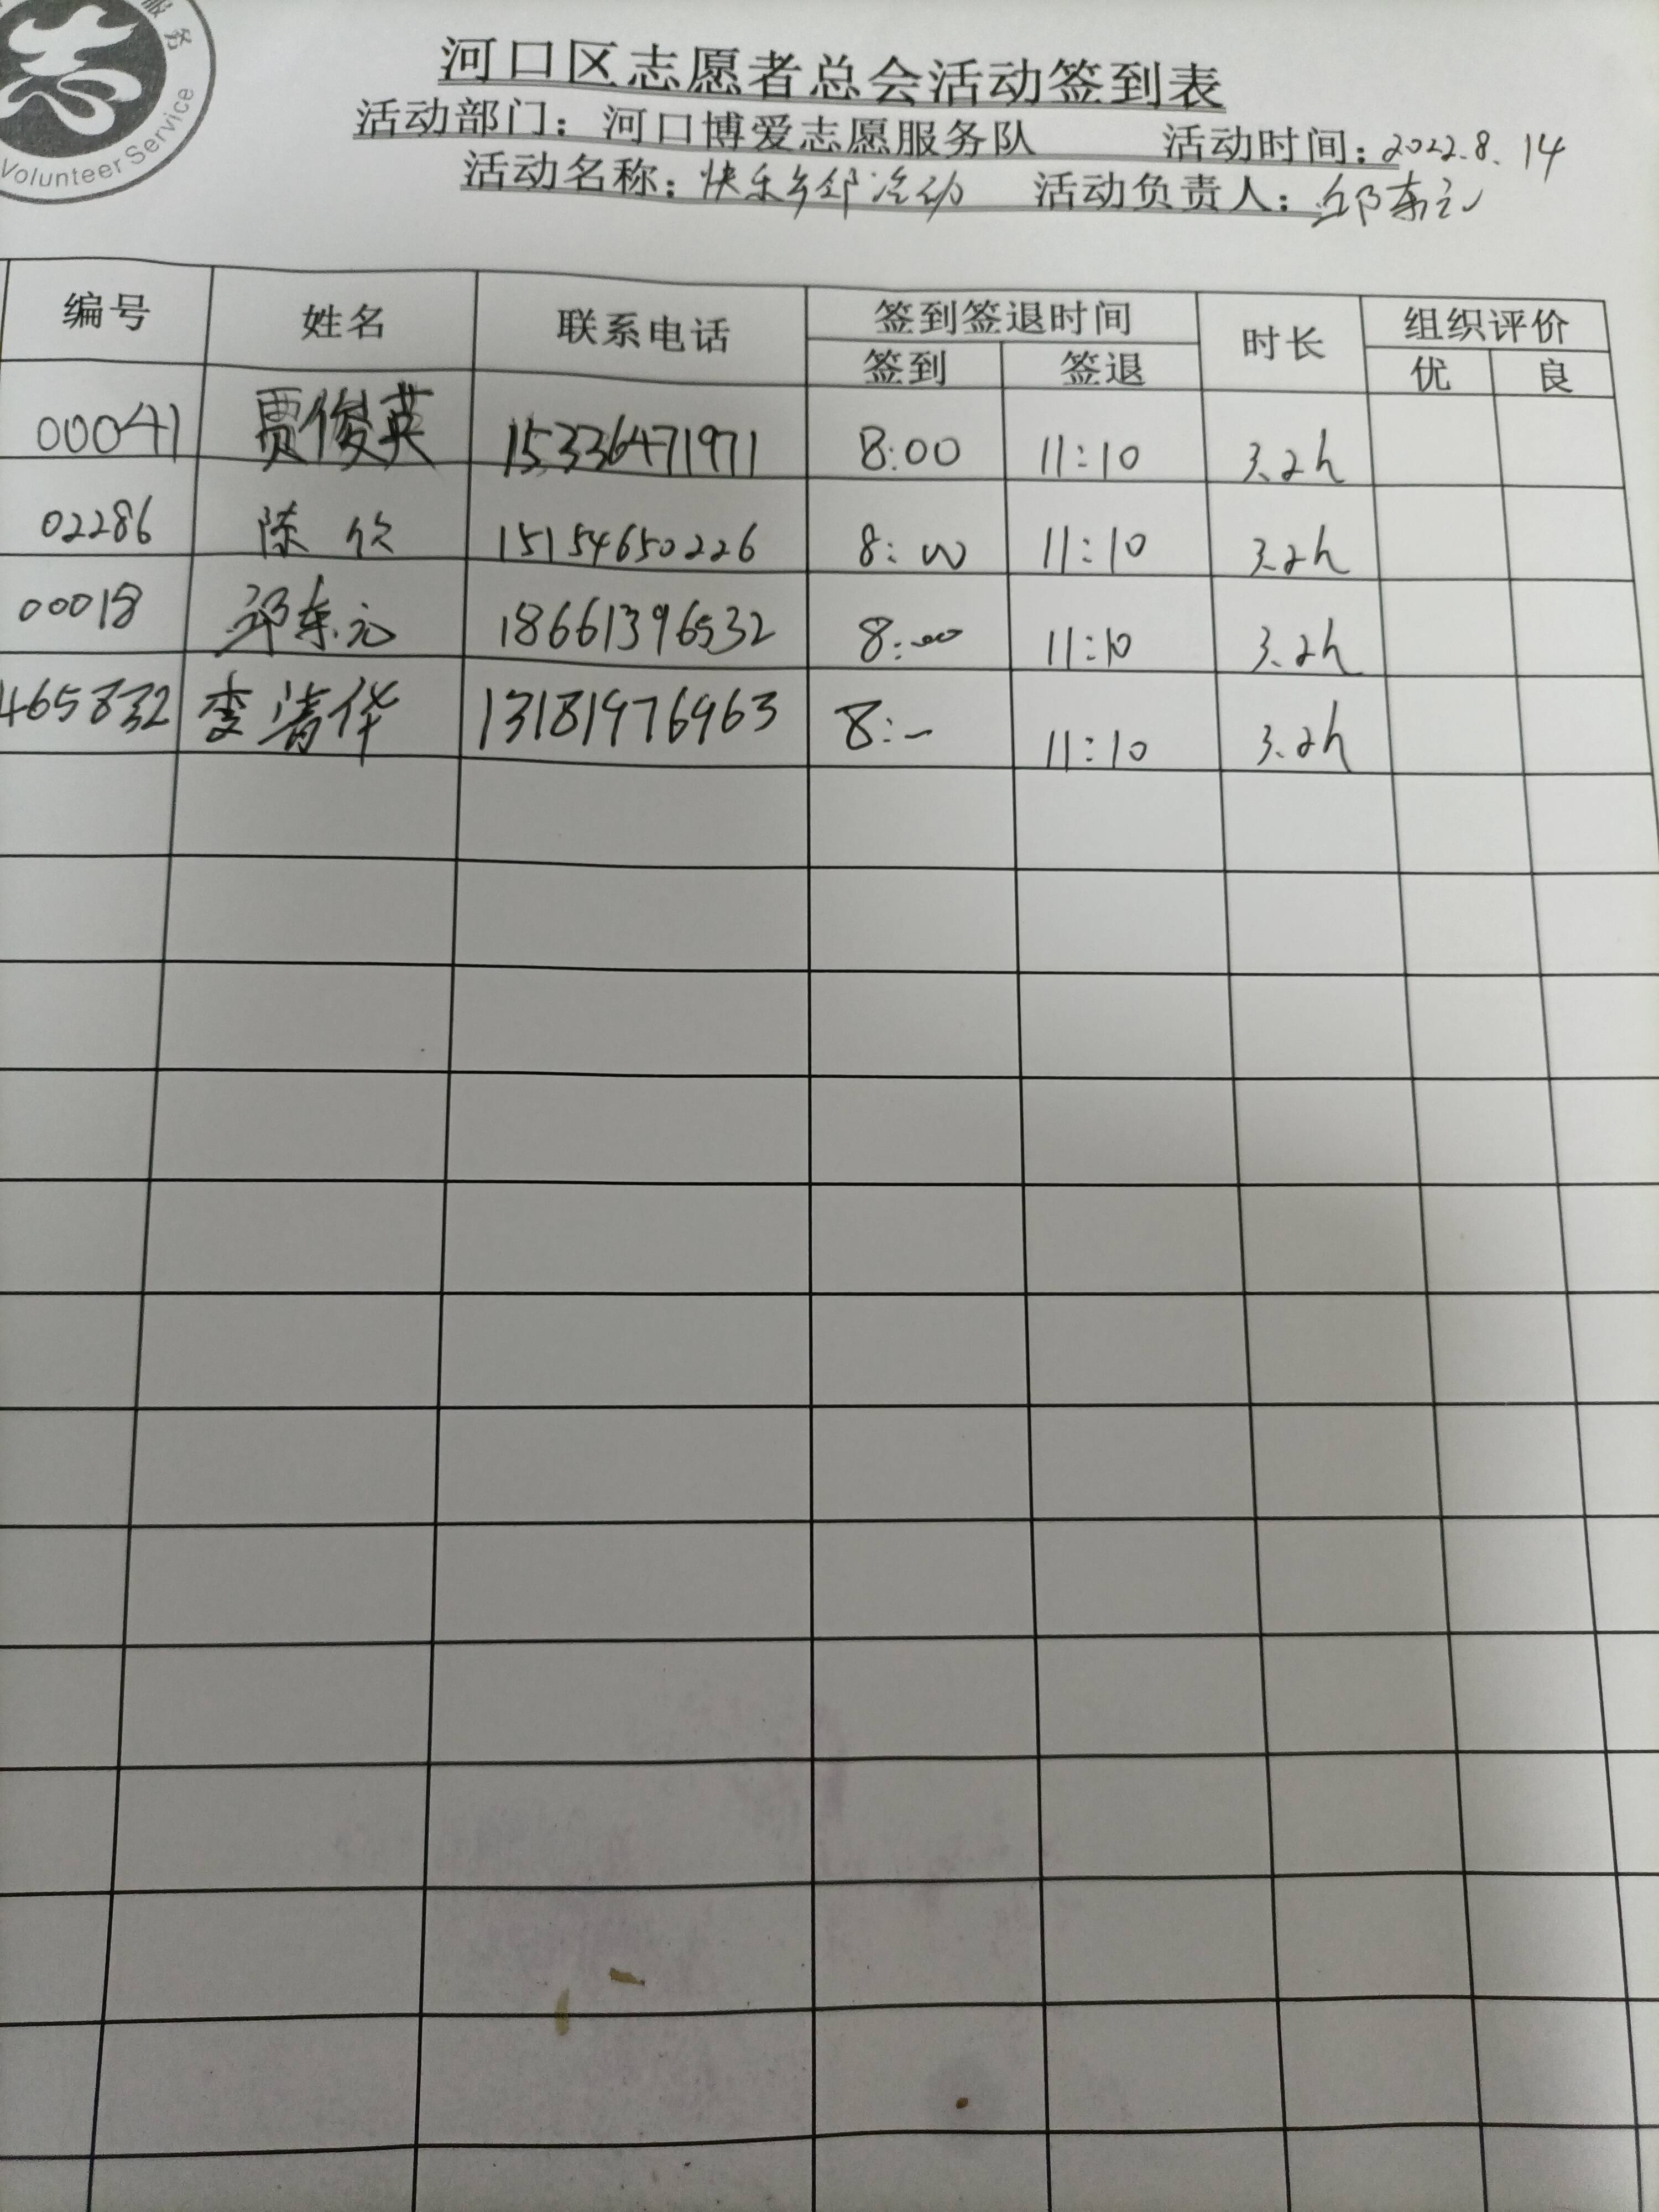 服务
Volunteer Service
河口区志愿者总会活动签到表
活动部门：河口博爱志愿服务队 活动时间：2022.8.14
活动名称：快乐乡邻活动 活动负责人：邱东元
编号 姓名 联系电话 签到签退时间 时长 组织评价
签到 签退 优 良
00041 贾俊英 15336471971 8:00 11:10 3.2h
02286 陈 15154650226 8:00 11:10 3.2h
00018 邱东元 18661396532 8:00 11:10 3.2h
465832 李清华 13181976963 8:- 11:10 3.2h